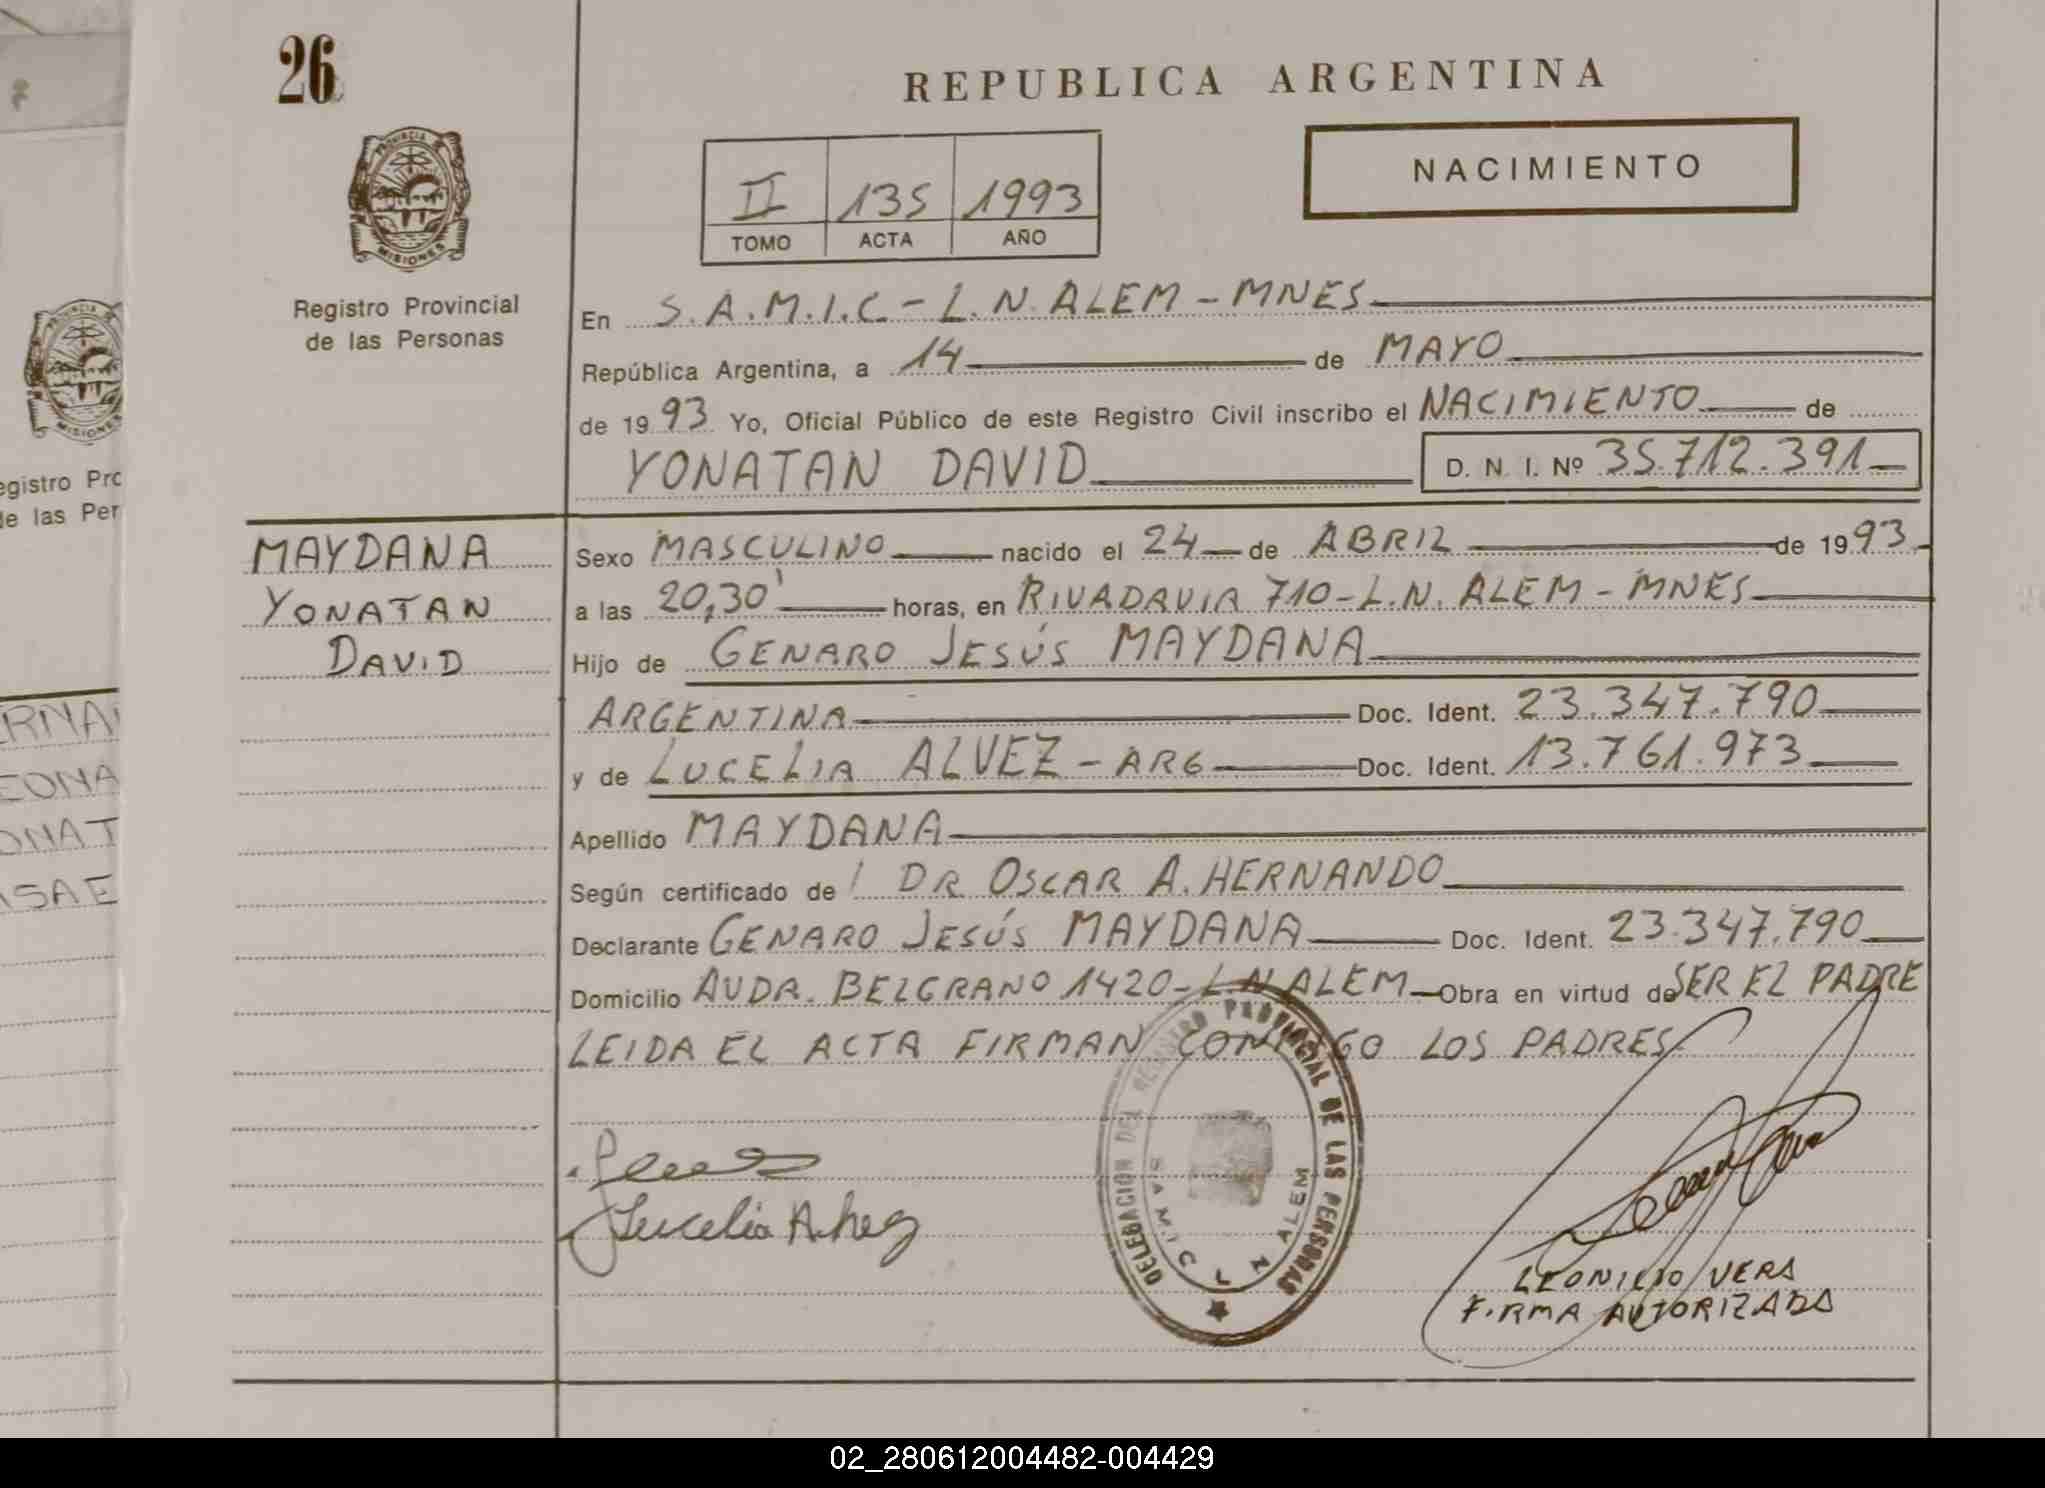 26
REPUBLICA ARGENTINA
PROVINCIA DE
MISIONES
Registro Provincial
de las Personas
II 135 1993
TOMO ACTA AÑO
NACIMIENTO
En S.A.M.I.C.-L.N.ALEM-MNES
República Argentina, a 14 de MAYO
de 1993 Yo, Oficial Público de este Registro Civil inscribo el NACIMIENTO de
YONATAN DAVID D. N. I. Nº 35.712.391
MAYDANA
YONATAN
DAVID
Sexo MASCULINO nacido el 24 de ABRIL de 1993
a las 20,30' horas, en RIVADAVIA 710-L.N. ALEM-MNES
Hijo de GENARO JESÚS MAYDANA
ARGENTINA Doc. Ident. 23.347.790
y de LUCELIA ALVEZ-ARG Doc. Ident. 13.761.973
Apellido MAYDANA
Según certificado de DR OSCAR A. HERNANDO
Declarante GENARO JESÚS MAYDANA Doc. Ident. 23.347.790
Domicilio AVDA. BELGRANO 1420-L.N ALEM Obra en virtud de SER EL PADRE
LEIDA EL ACTA FIRMAN CONMIGO LOS PADRES
DELEGACION DEL REGISTRO PROVINCIAL DE LAS PERSONAS
SAMIC L N ALEM
Lucelia Alvez
LEONILIO VERA
FIRMA AUTORIZADA
egistro Pro
de las Per
ERNA
EONA
ONAT
ISAE
02_280612004482-004429